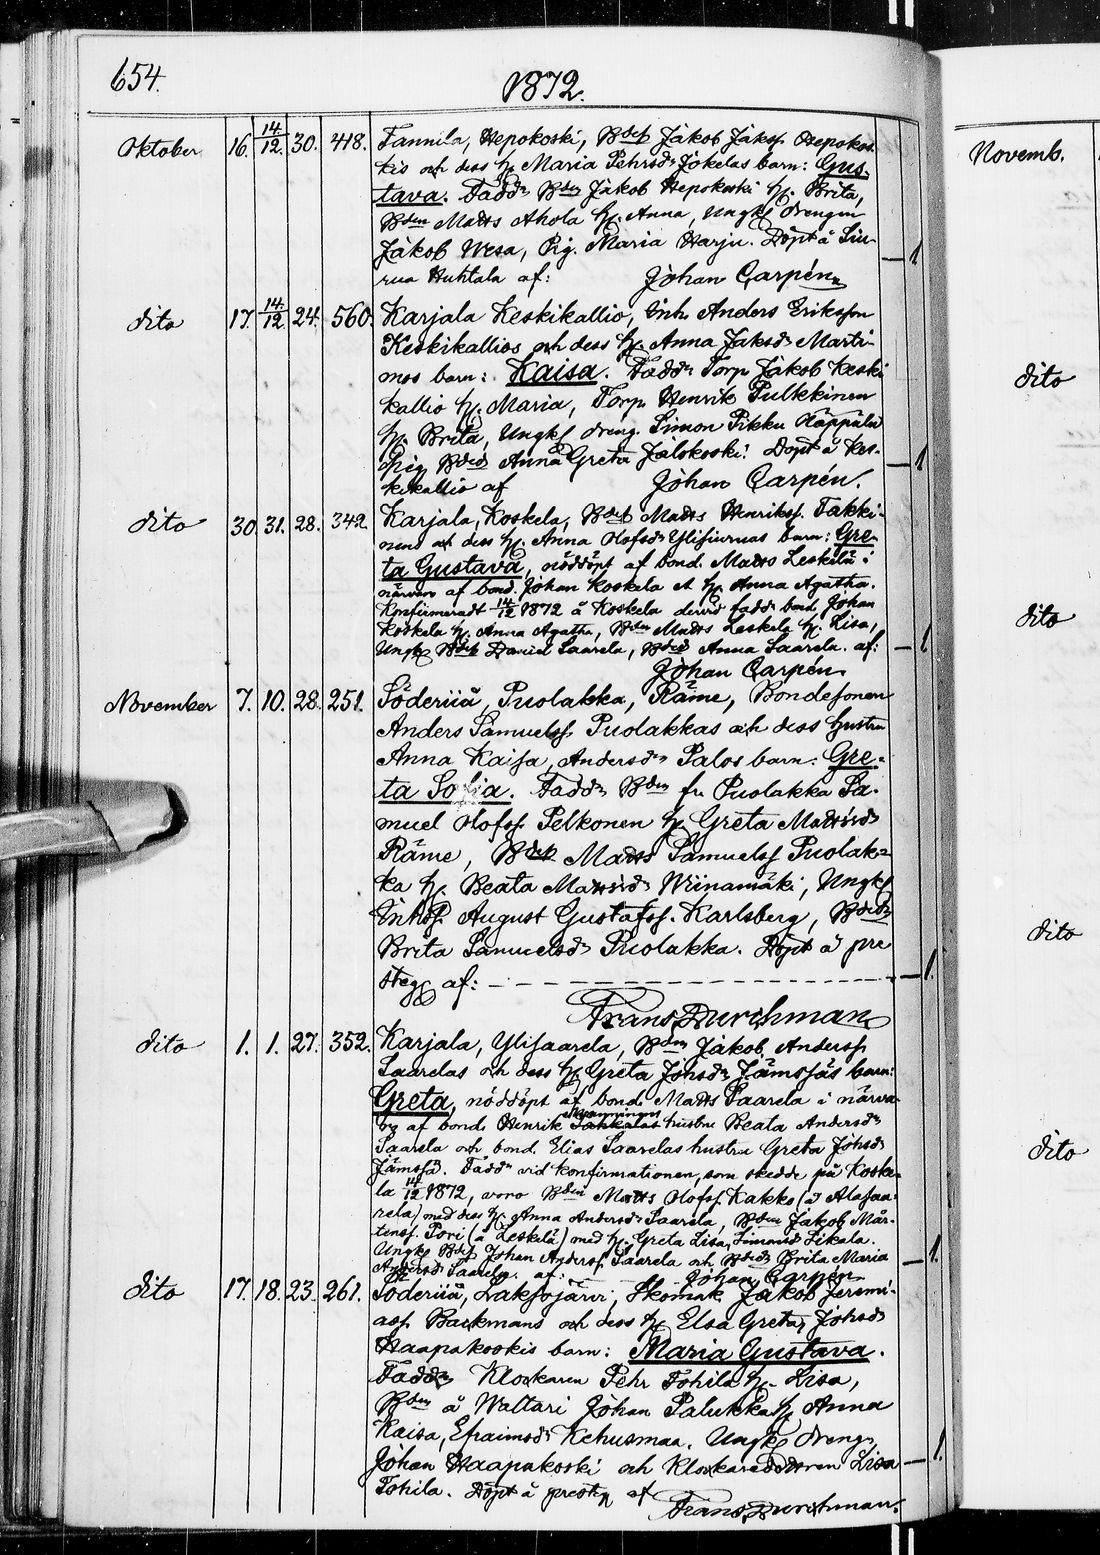 654.
1872.
Oktober 16. 14/12. 30. 418. Tannila, Hepokoski, Bdes Jakob Jaks. Hepokos-
kis och dess h. Maria Pehrsdr Jokelas barn: Gus-
tava. Fadd. Bden Jakob Hepokoski h. Brita,
Bden Matts Ahola h. Anna, Ungk. drengen
Jakob Wesa, Pig. Maria Harju. Döpt å Siu-
rua Huhtala af: Johan Carpén 1
dito 17. 14/12 24. 560. Karjala Keskikallio, Inh. Anders Eriksson
Keskikallios och dess h. Anna Jaksdr Marti-
mos barn: Kaisa. Fadd. Torp. Jakob Keski
kallio h. Maria, Torp. Henrik Pulkkinen
h. Brita, Ungk. dreng. Simon Pikku Käppälä
Pig Bded Anna Greta Jalokoski. Döpt å Kes-
kikallio af Johan Carpén. 1
dito 30. 31. 28. 342. Karjala, Koskela, Bdes Matts Henriks. Takki-
nens och dess h. Anna Olofsdr Ylisiuruas barn: Gre-
ta Gustava, nöddöpt af bond. Matts Leskelä i
närvaro af bond. Johan Koskela et h. Anna Agatha.
Konfirmeradt 14/12 1872 å Koskela dervid fadd. bond. Johan
Koskela h. Anna Agatha, Bden Matts Leskelä h. Lisa,
Ungk. Bdes Daniel Saarela, Bded Anna Saarela. af: 1
Johan Carpén
November 7. 10. 28. 251. Söderiiå, Puolakka, Räme, Bondesonen
Anders Samuels. Puolakkas och dess hustru
Anna Kaisa Andersdr Palos barn: Gre-
ta Sofia. Fadd. Bden fr. Puolakka Sa-
muel Olofss. Pelkonen h. Greta Mattsdr
Räme, Bdes Matts Samuels. Puolak-
ka h. Beata Mattsdr Wiinamäki, Ungk.
Inhs. August Gustafss. Karlsberg, Bded
Brita Samuelsdr Puolakka. Döpt å pre
steg. af: 1.
Frans Durchman
dito 1. 1. 27. 352. Karjala, Ylisaarela, Bden Jakob Anderss.
Saarelas och dess h. Greta Johsdr Jämsjäs barn:
Greta, nöddöpt af bond. Matts Saarela i närva-
ro af bond. Henrik Tahkalas hustru Beata Andersdr
Saarela och bond. Elias Saarelas hustru Greta Johsdr
Jämsjä. Fadd. vid konfirmationen, som skedde på Koske-
la 14/12 1872, voro Bden Matts Olofss. Kakko (å Alasaa-
rela) med dess h. Anna Andersdr Saarela, Bden Jakob Mår-
tenss. Pori (å Leskelä) med h. Greta Lisa Simonsd. Sikala.
Ungk. Bdes Johan Anderss. Saarela och Bded Brita Maria 1.
Andersdr Saarela. af: Johan Carpén
dito 17. 18. 23. 261. Söderiiå, Laksojärvi, Skomak. Jakob Jeremi-
ass. Backmans och dess h. Elsa Greta Johsdr
Haapakoskis barn: Maria Gustava.
Fadd. Klockaren Pehr Tohila h. Lisa,
Bden å Waltari Johan Palukka h. Anna
Kaisa, Efraimsdr Kehusmaa, Ungk. dreng.
Johan Haapakoski och Klockaredottren Lisa 1.
Tohila. Döpt å presteg. af Frans Durchman.
Novemb.
dito
dito
dito
dito